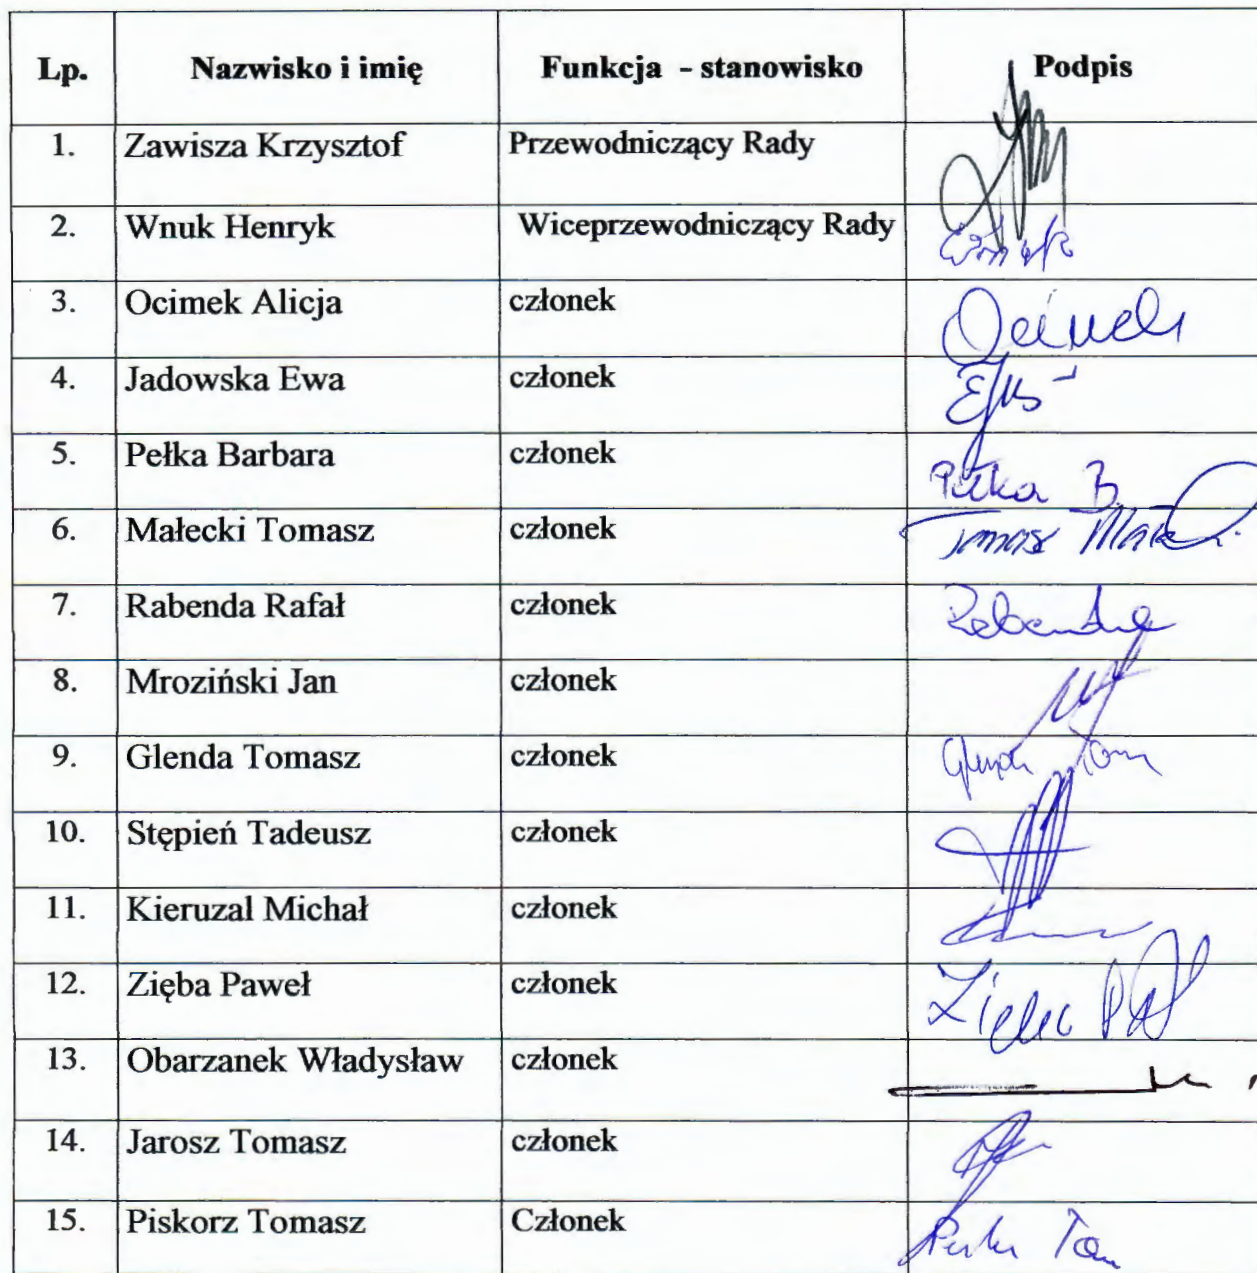 Lp. Nazwisko i imię Funkcja - stanowisko Podpis
1. Zawisza Krzysztof Przewodniczący Rady
2. Wnuk Henryk Wiceprzewodniczący Rady
3. Ocimek Alicja członek Ocimek
4. Jadowska Ewa członek
5. Pełka Barbara członek Pełka B.
6. Małecki Tomasz członek Tomasz
7. Rabenda Rafał członek Rabenda
8. Mroziński Jan członek
9. Glenda Tomasz członek
10. Stępień Tadeusz członek
11. Kieruzal Michał członek
12. Zięba Paweł członek
13. Obarzanek Władysław członek
14. Jarosz Tomasz członek
15. Piskorz Tomasz Członek